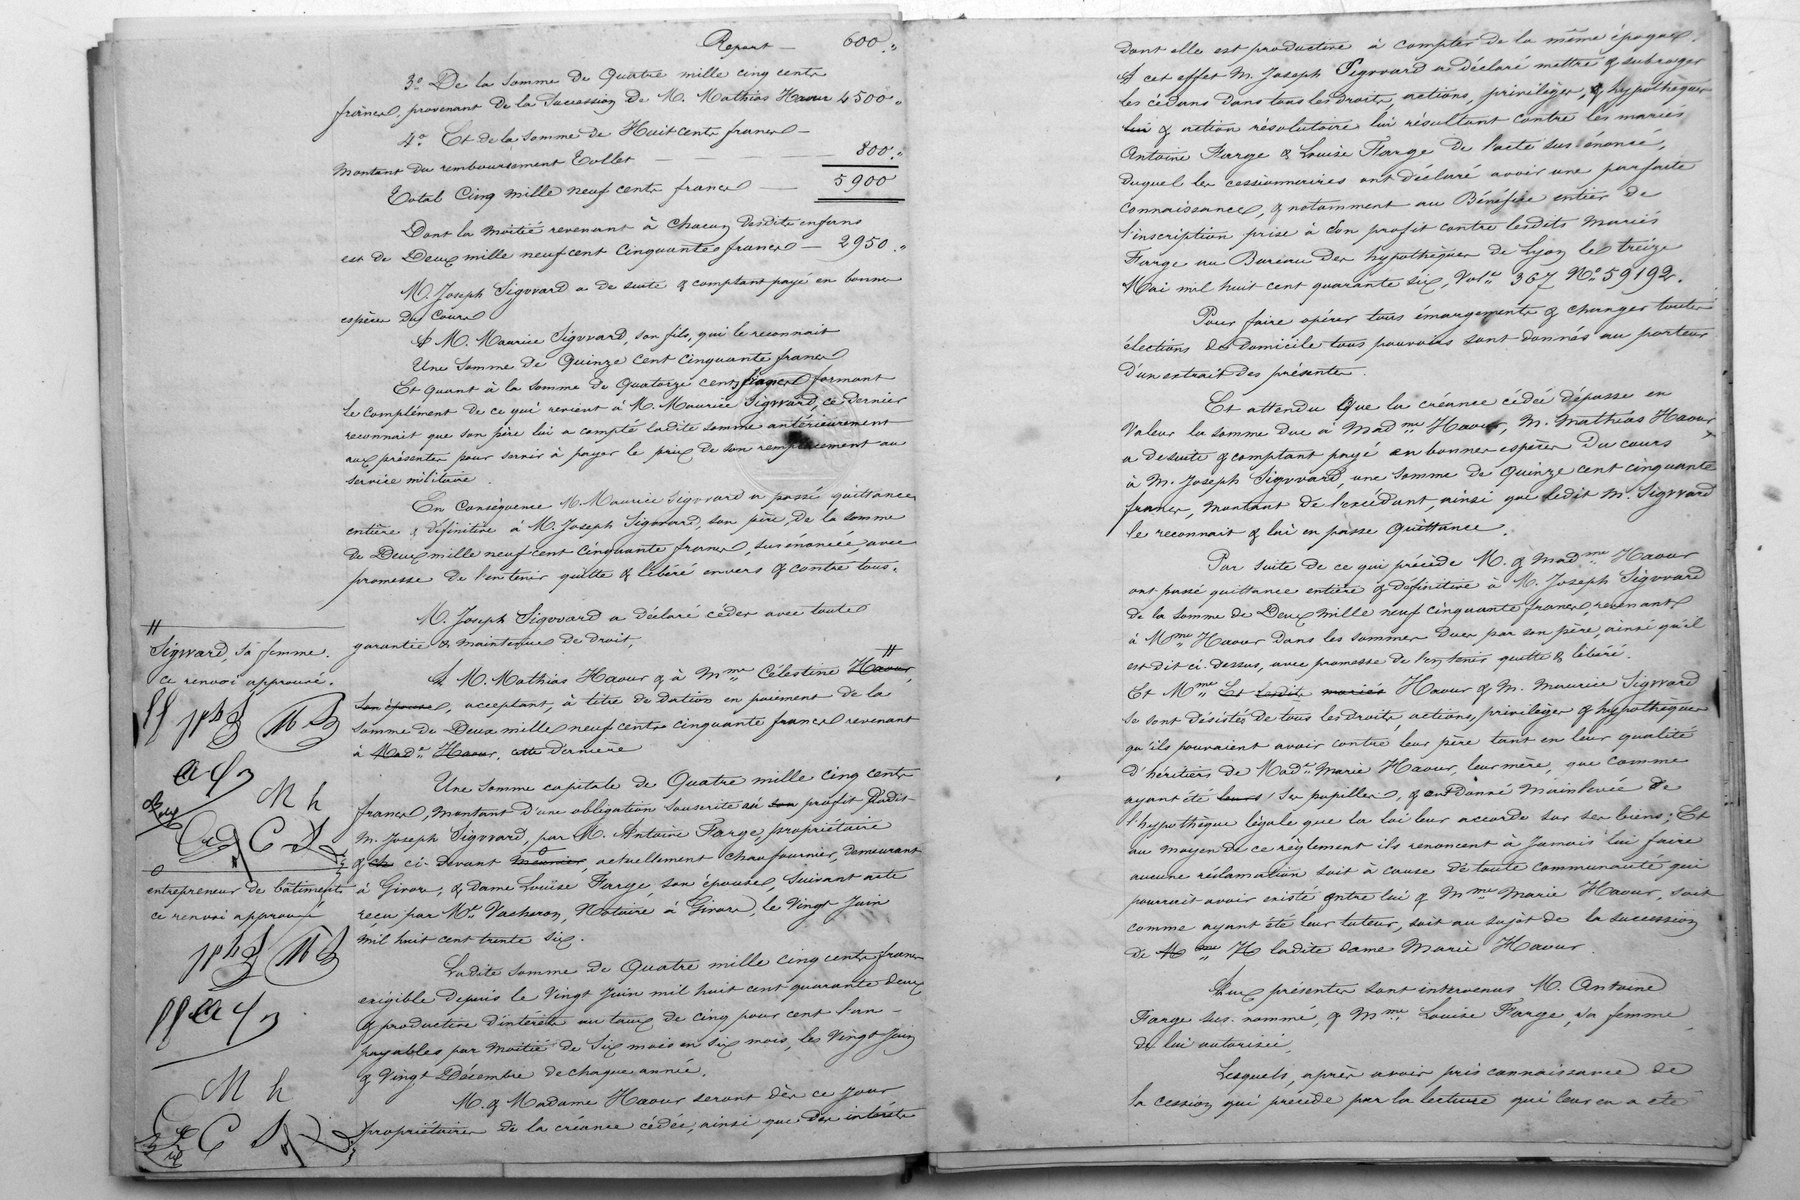 Report — 600 "
3º De la somme de Quatre mille cinq cents
francs, provenant de la Succession de M. Mathias Haour 4500 "
4º Et de la somme de Huit cents francs —
montant du remboursement Collet — 800 "
Total Cinq mille neuf cents francs — 5900
Dont la moitié revenant à chacun desdits enfans
est de Deux mille neuf cent cinquante francs — 2950 "
M. Joseph Sigvvard a de suite & comptant payé en bonnes
espèces du cours
A M. Maurice Sigvvard, son fils, qui le reconnait
Une somme de Quinze cent cinquante francs
Et quant à la somme de Quatorze cents francs formant
le complément de ce qui revient à M. Maurice Sigvvard, ce dernier
reconnait que son père lui a compté ladite somme antérieurement
aux présentes pour servir à payer le prix de son remplacement au
service militaire.
En conséquence M. Maurice Sigvvard a passé quittance
entière & définitive à M. Joseph Sigvvard, son père, de la somme
de Deux mille neuf cent cinquante francs, sus énoncée, avec
promesse de l'en tenir quitte & libéré envers & contre tous.
M. Joseph Sigvvard a déclaré céder avec toute
garantie & maintenue de droit,
A M. Mathias Haour & à Mme Célestine Haour,
son épouse, acceptant, à titre de dation en paiement de la
somme de Deux mille neuf cents cinquante francs revenant
à Made Haour, cette dernière
Une somme capitale de Quatre mille cinq cents
francs, montant d'une obligation souscrite au son profit dudit
M. Joseph Sigvvard, par M. Antoine Farge, propriétaire
& ch ci-devant meunier, actuellement chaufournier, demeurant
à Givors, & Dame Louise Farge, son épouse, suivant acte
reçu par Me Vacheron, Notaire à Givors, le vingt Juin
mil huit cent trente six.
Ladite somme de Quatre mille cinq cents francs
exigible depuis le vingt Juin mil huit cent quarante deux
& productive d'intérêts au taux de cinq pour cent l'an —
payables par moitié de six mois en six mois, les vingt Juin
& vingt Décembre de chaque année.
M. & Madame Haour seront dès ce jour
propriétaires de la créance cédée, ainsi que des intérêts
Sigvvard, sa femme.
ce renvoi approuvé.
M h
entrepreneur de bâtiments
ce renvoi approuvé
M h
dont elle est productive à compter de la même époque.
A cet effet M. Joseph Sigvvard a déclaré mettre & subroger
les cédans dans tous les droits, actions, privilèges, & hypothèques
lui & action résolutoire lui résultant contre les mariés
Antoine Farge & Louise Farge de l'acte sus énoncé,
duquel les cessionnaires ont déclaré avoir une parfaite
connaissance, & notamment au Bénéfice entier de
l'inscription prise à son profit contre lesdits mariés
Farge au Bureau des hypothèques de Lyon le treize
Mai mil huit cent quarante six, Vol. 367 Nº 59192.
Pour faire opérer tous émargements & changer toutes
élections de domicile tous pouvoirs sont donnés au porteur
d'un extrait des présentes.
Et attendu que la créance cédée dépasse en
valeur la somme due à Madme Haour, M. Mathias Haour
a de suite & comptant payé en bonnes espèces du cours
à M. Joseph Sigvvard, une somme de Quinze cent cinquante
francs, montant de l'excédant, ainsi que ledit M. Sigvvard
le reconnait & lui en passe quittance.
Par suite de ce qui précède M. & Madme Haour
ont passé quittance entière & définitive à M. Joseph Sigvvard
de la somme de Deux mille neuf cinquante francs, revenant
à Mme Haour dans les sommes dues par son père, ainsi qu'il
est dit ci-dessus, avec promesse de l'en tenir quitte & libéré.
Et Mme Et lesdits mariés Haour & M. Maurice Sigvvard
se sont désistés de tous les droits, actions, privilèges & hypothèques
qu'ils pouvaient avoir contre leur père tant en leur qualité
d'héritiers de Made Marie Haour, leur mère, que comme
ayant été leurs ses pupilles, & ont donné mainlevée de
l'hypothèque légale que la loi leur accorde sur ses biens; Et
au moyen de ce règlement ils renoncent à jamais lui faire
aucune réclamation soit à cause de toute communauté qui
pourrait avoir existé entre lui & Mme Marie Haour, soit
comme ayant été leur tuteur, soit au sujet de la succession
de M me H ladite dame Marie Haour.
Aux présentes sont intervenus M. Antoine
Farge sus-nommé, & Mme Louise Farge, sa femme,
de lui autorisée,
Lesquels, après avoir pris connaissance de
la cession qui précède par la lecture qui leur en a été